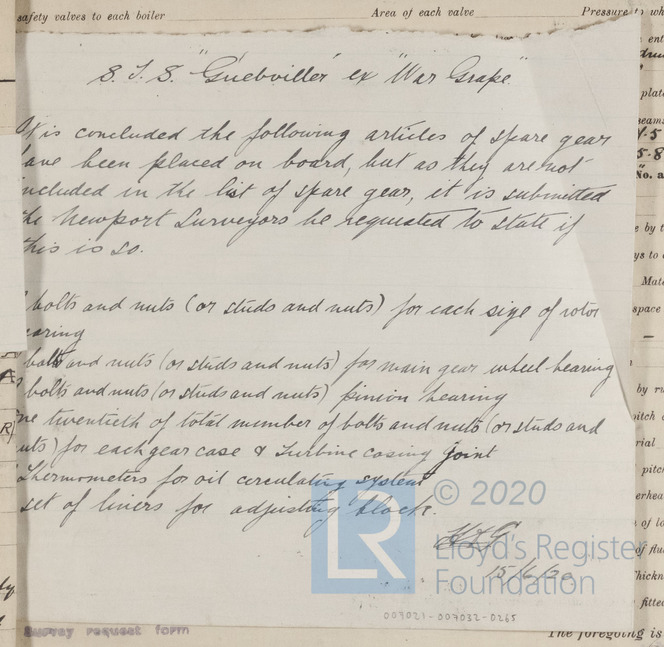 safety valves to each boiler Area of each valve Pressure to wh
S.T.S. "Guebviller" ex "War Grape"
It is concluded the following articles of spare gear
have been placed on board, but as they are not
included in the list of spare gear, it is submitted
the Newport Surveyors be requested to state if
this is so.
bolts and nuts (or studs and nuts) for each size of rotor
earing
bolts and nuts (or studs and nuts) for main gear wheel bearing
bolts and nuts (or studs and nuts) pinion bearing
ne twentieth of total number of bolts and nuts (or studs and
uts) for each gear case & turbine casing joint
Thermometers for oil circulating system
set of liners for adjusting block.
15/6/20
LR
© 2020
Lloyd's Register
Foundation
007021-007032-0265
Survey request form
The foregoing is